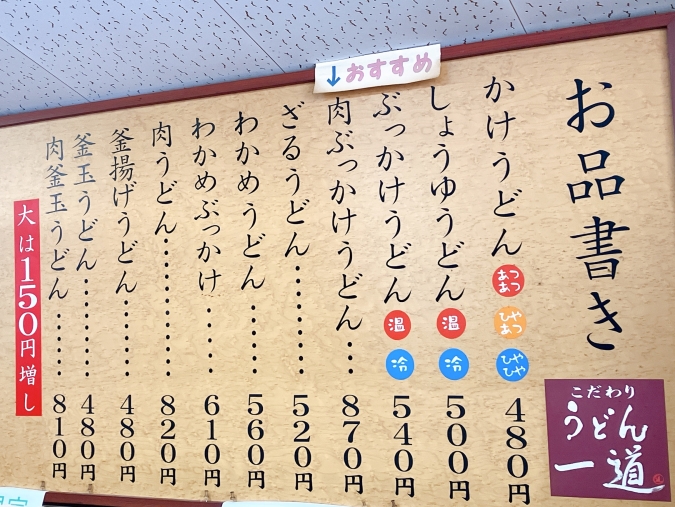 お品書き
こだわり
うどん
一道
↓おすすめ
かけうどん
あつあつ
ひやあつ
ひやひや
480円
しょうゆうどん
温
冷
500円
ぶっかけうどん
温
冷
540円
肉ぶっかけうどん…
870円
ざるうどん………
520円
わかめうどん……
560円
わかめぶっかけ……
610円
肉うどん…………
820円
釜揚げうどん……
480円
釜玉うどん………
480円
肉釜玉うどん……
810円
大は150円増し